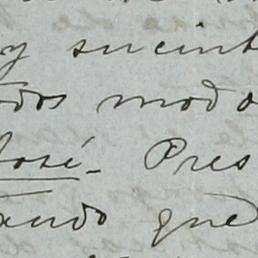 y sucint
odos modo
José_ Pres
ando que